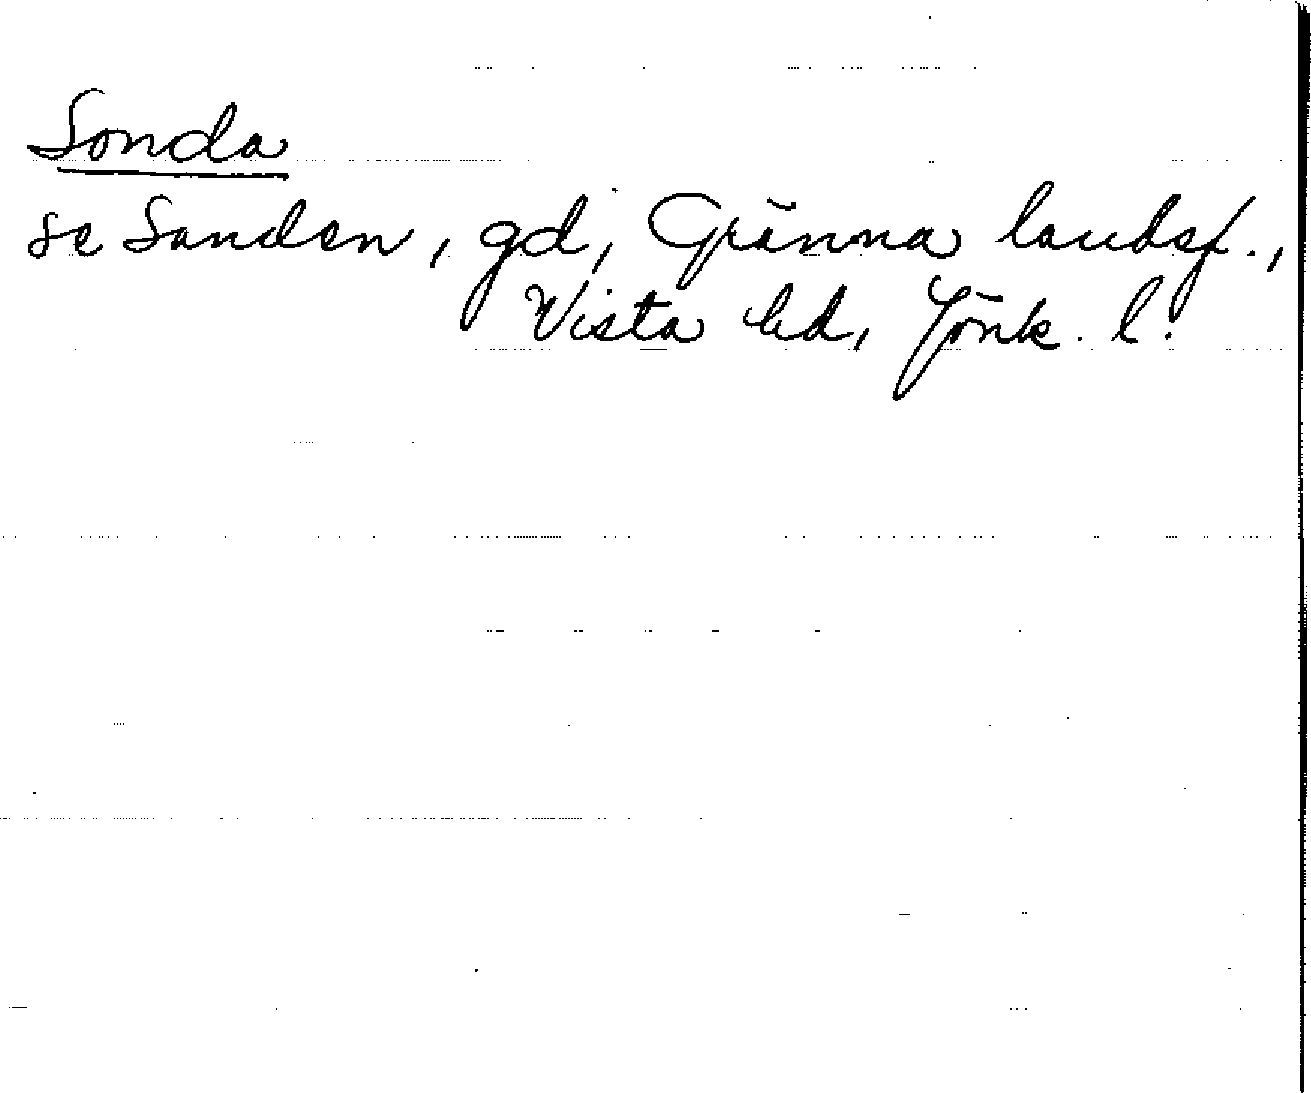 Sonda
se Sanden, gd, Gränna landsf.,
Vista hd, Jönk. l.